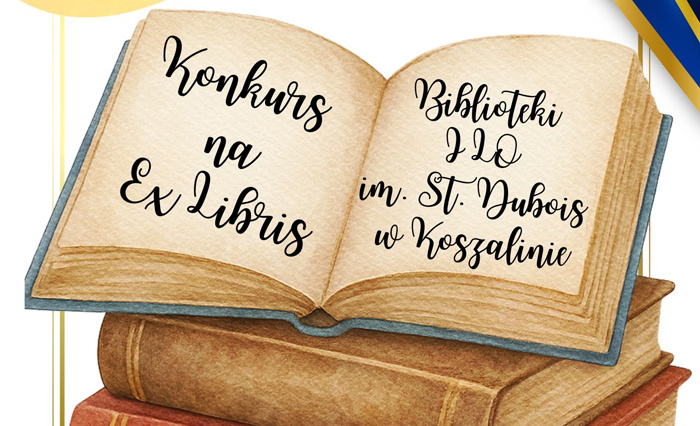 Konkurs
na
Ex Libris
Biblioteki
I LO
im. St. Dubois
w Koszalinie